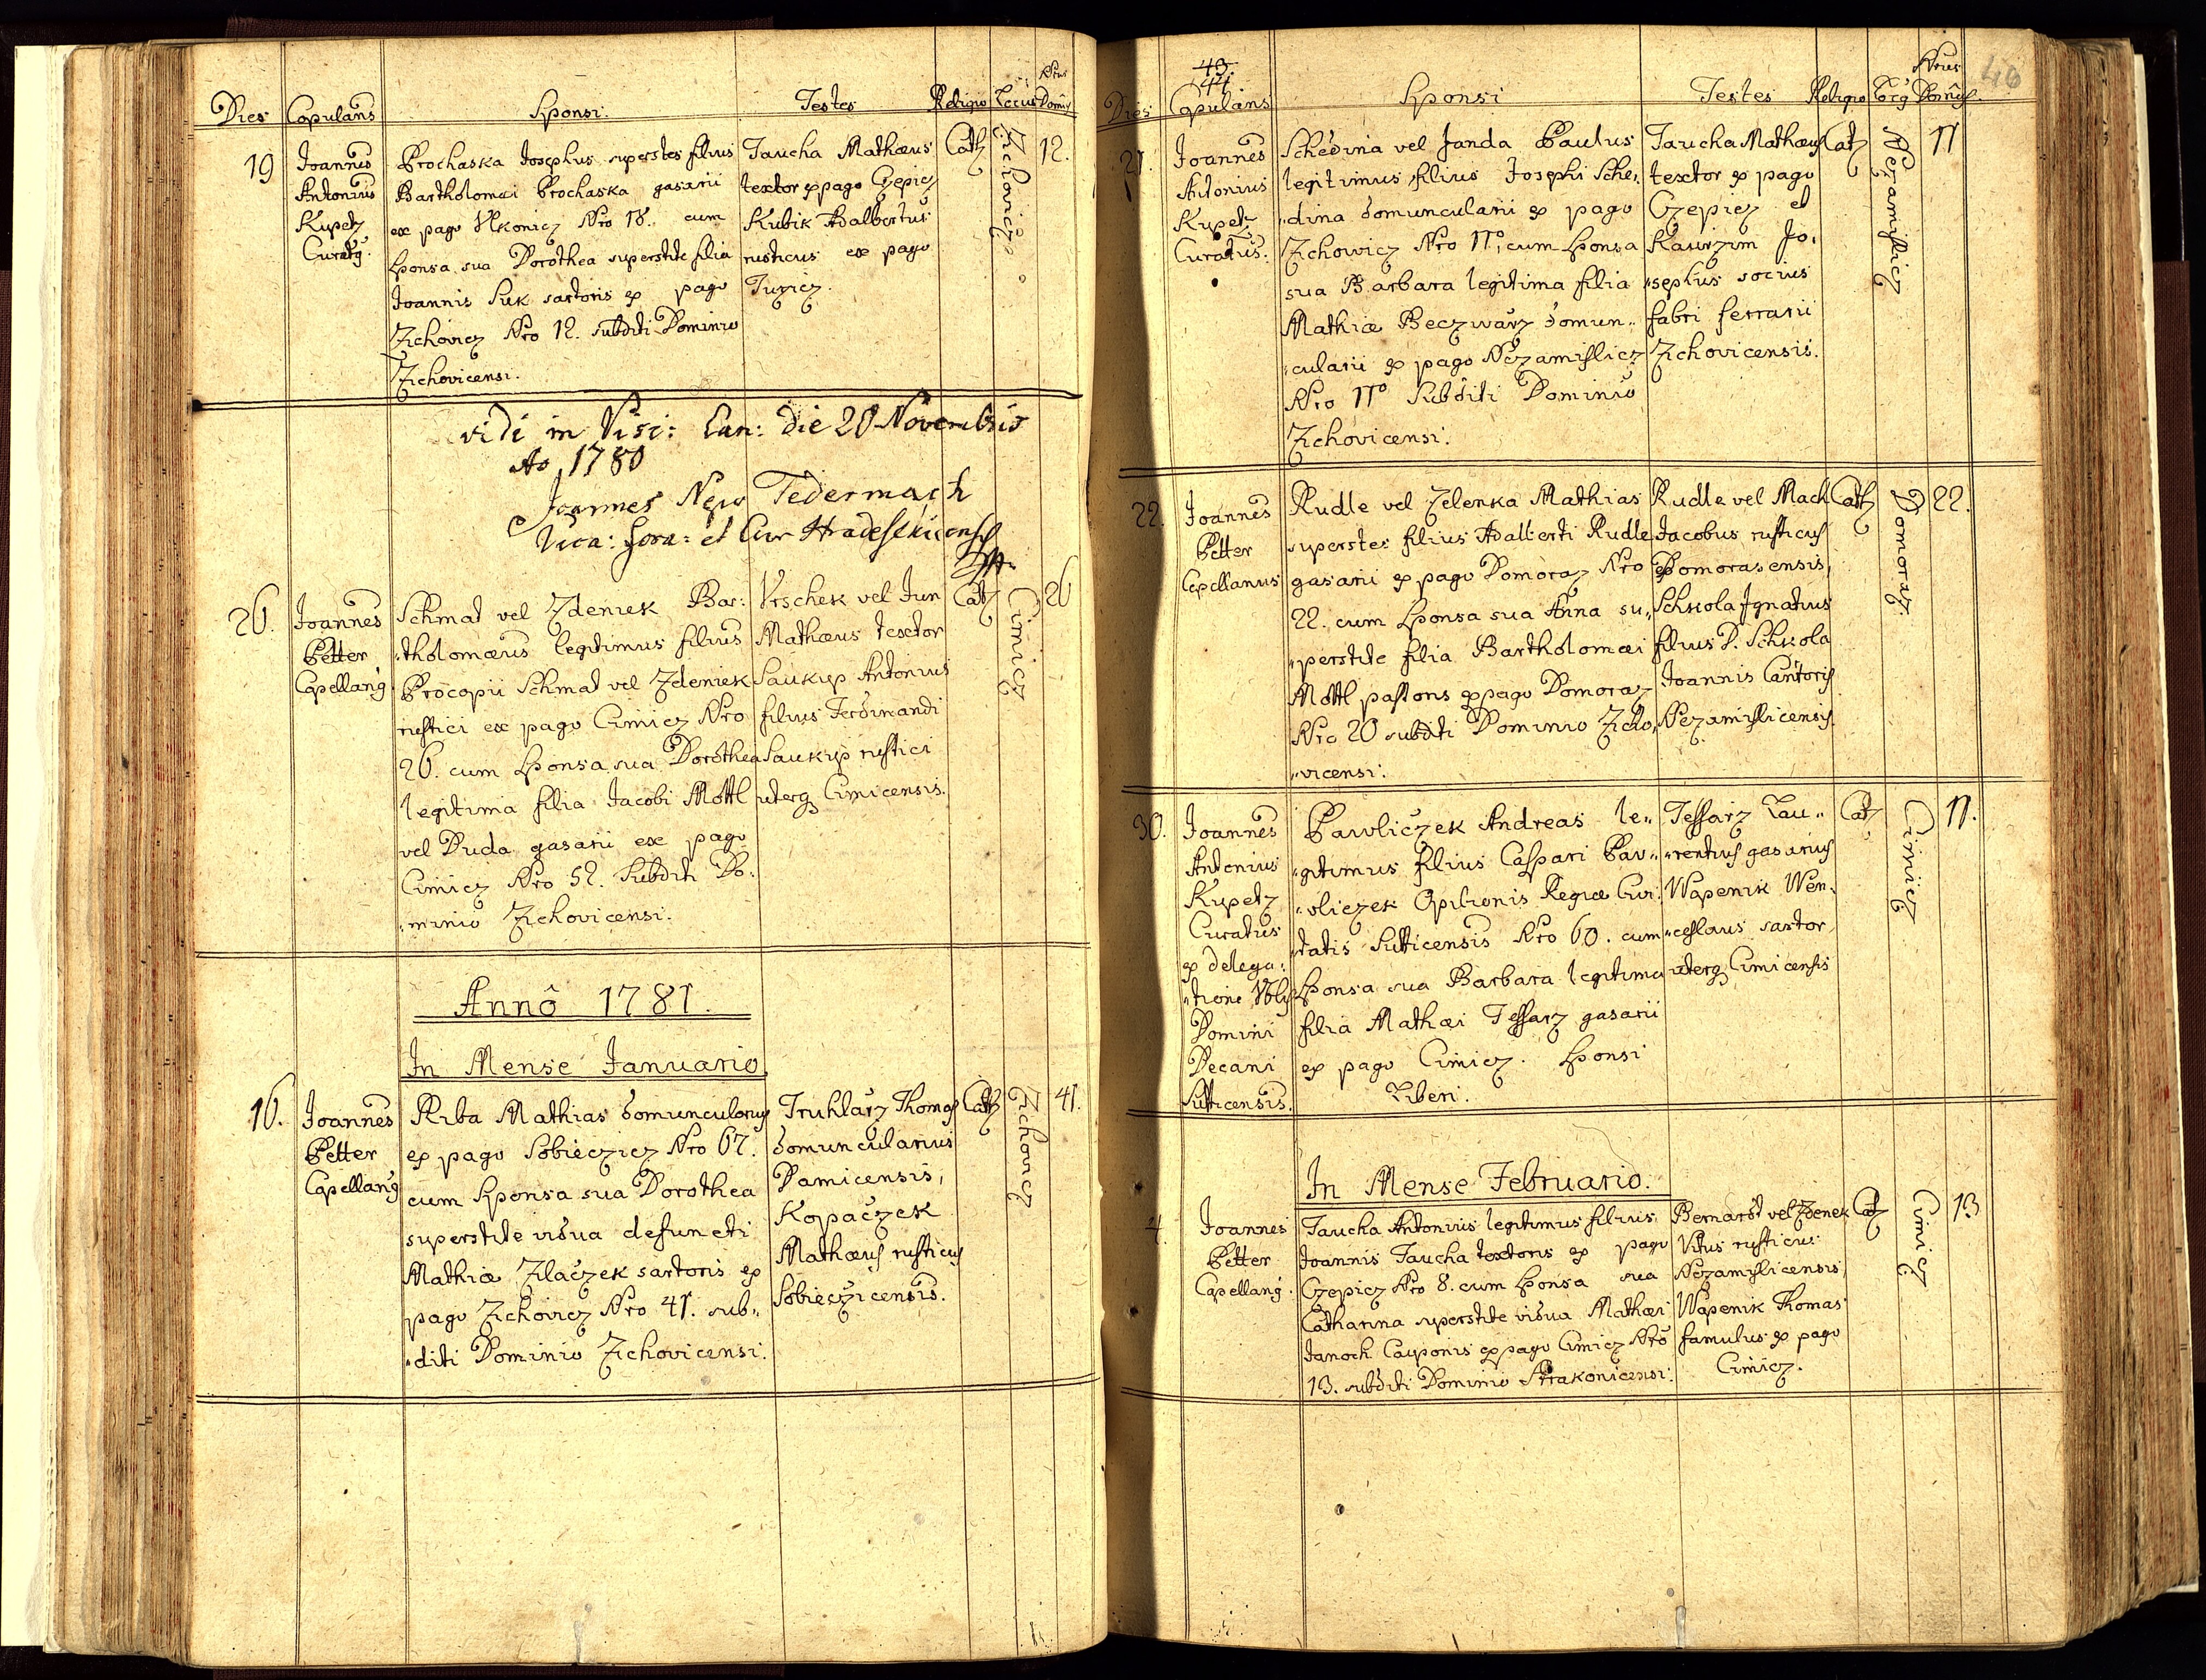 Dies Copulans Sponsi. Testes Religio Locus Nrus Domus
19 Joannes Antonius Kupetz Curatq.
Prochaska Josephus superstes filius
Bartholomæi Prochaska gasarii
ex pago Nro 18. cum
Sponsa sua Dorothea superstite filia
Joannis Suk sartoris ex pago
Zichovicz Nro 12. subditi Dominio
Zichovicensi.
Taucha Mathæus
textor ex pago Czepicz
Kubik Adalbertus
rusticus ex pago
Cath
Zichovicz
12.
vidi in Visi: Can: die 20 Novembris
Ao 1780
Joannes Nep
Vica: fora: et Cur
26. Joannes Petter Capellang
Schmat vel Zdeniek Bar:
"tholomæus legitimus filius
Procopii Schmat vel Zdeniek
rustici ex pago Cimicz Nro
26. cum Sponsa sua Dorothea
legitima filia Jacobi Mottl
vel Duda gasarii ex pago
Cimicz Nro 52. Subditi Do:
"minio Zichovicensi.
Vrschek vel Jun
Mathæus textor
Saukup Antonius
filius Ferdinandi
Saukup rustici
uterq Cimicensis.
Cath
Cimicz
26
Annô 1781.
In Mense Januario
16. Joannes Petter Capellang
Riba Mathias domuncularius
ex pago Sobieczicz Nro 67.
cum Sponsa sua Dorothea
superstite vidua defuncti
Mathiæ Zilaczek sartoris ex
pago Zichovicz Nro 41. sub"
"diti Dominio Zichovicensi.
Truhlarz Thomas
domuncularius
Damicensis,
Kopaczek
Mathæus rusticus
Sobieczicensis.
Cath
Zichovicz
41.
43.
44
46
Dies Copulans Sponsi Testes Religio Nrus Domus.
21. Joannes Antonius Kupetz Curatus.
Schedina vel Janda Paulus
legitimus filius Josephi Sche"
"dina domuncularii ex pago
Zichowicz Nro 11o, cum Sponsa
sua Barbara legitima filia
Mathiæ Beczwarz domun"
"cularii ex pago Nezamislicz
Nro 11o Subditi Dominio
Zichovicensi.
Taucha Mathæus
textor ex pago
Czepicz et
Kaurzim Jo,
"sephus socius
fabri ferrarii
Zichovicensis.
Cath
Nezamislicz
11
22. Joannes Petter Capellanus
Rudle vel Zelenka Mathias
superstes filius Adalberti Rudle
gasarii ex pago Domoraz Nro
22. cum Sponsa sua Anna su"
"perstite filia Bartholomæi
Mottl pastoris ex pago Domoraz
Nro 20 subditi Dominio Zicho"
"vicensi.
Rudle vel Mach
Jacobus rusticus
Domorasensis,
Schkola Ignatius
filius D. Schkola
Joannis Cantoris
Nezamislicensis.
Cath
Domoraz.
22.
30. Joannes Antonius Kupetz Curatus ex delega: "tione Domini Decani Sutticensis.
Pawliczek Andreas le"
"gitimus filius Caspari Paw"
"vliczek Opilionis Regiæ Civi:
tatis Sutticensis Nro 60. cum
Sponsa sua Barbara legitima
filia Mathæi Tessarz gasarii
ex pago Cimicz. Sponsi
Liberi.
Tessarz Lau"
"rentius gasarius
Wapenik Wen"
"ceslaus sartor
uterq Cimicensis
Cath
Cimicz
11.
In Mense Februario.
4. Joannes Petter Capellang.
Taucha Antonius legitimus filius
Joannis Taucha textoris ex pago
Czepicz Nro 8. cum Sponsa sua
Catharina superstite vidua Mathæi
Janoch Cauponis ex pago Cimicz Nro
13. subditi Dominio Strakonicensi.
Bernardt vel Zdenek
Vitus rusticus
Nezamislicensis,
Wapenik Thomas
famulus ex pago
Cimicz.
Cath
Cimicz.
13